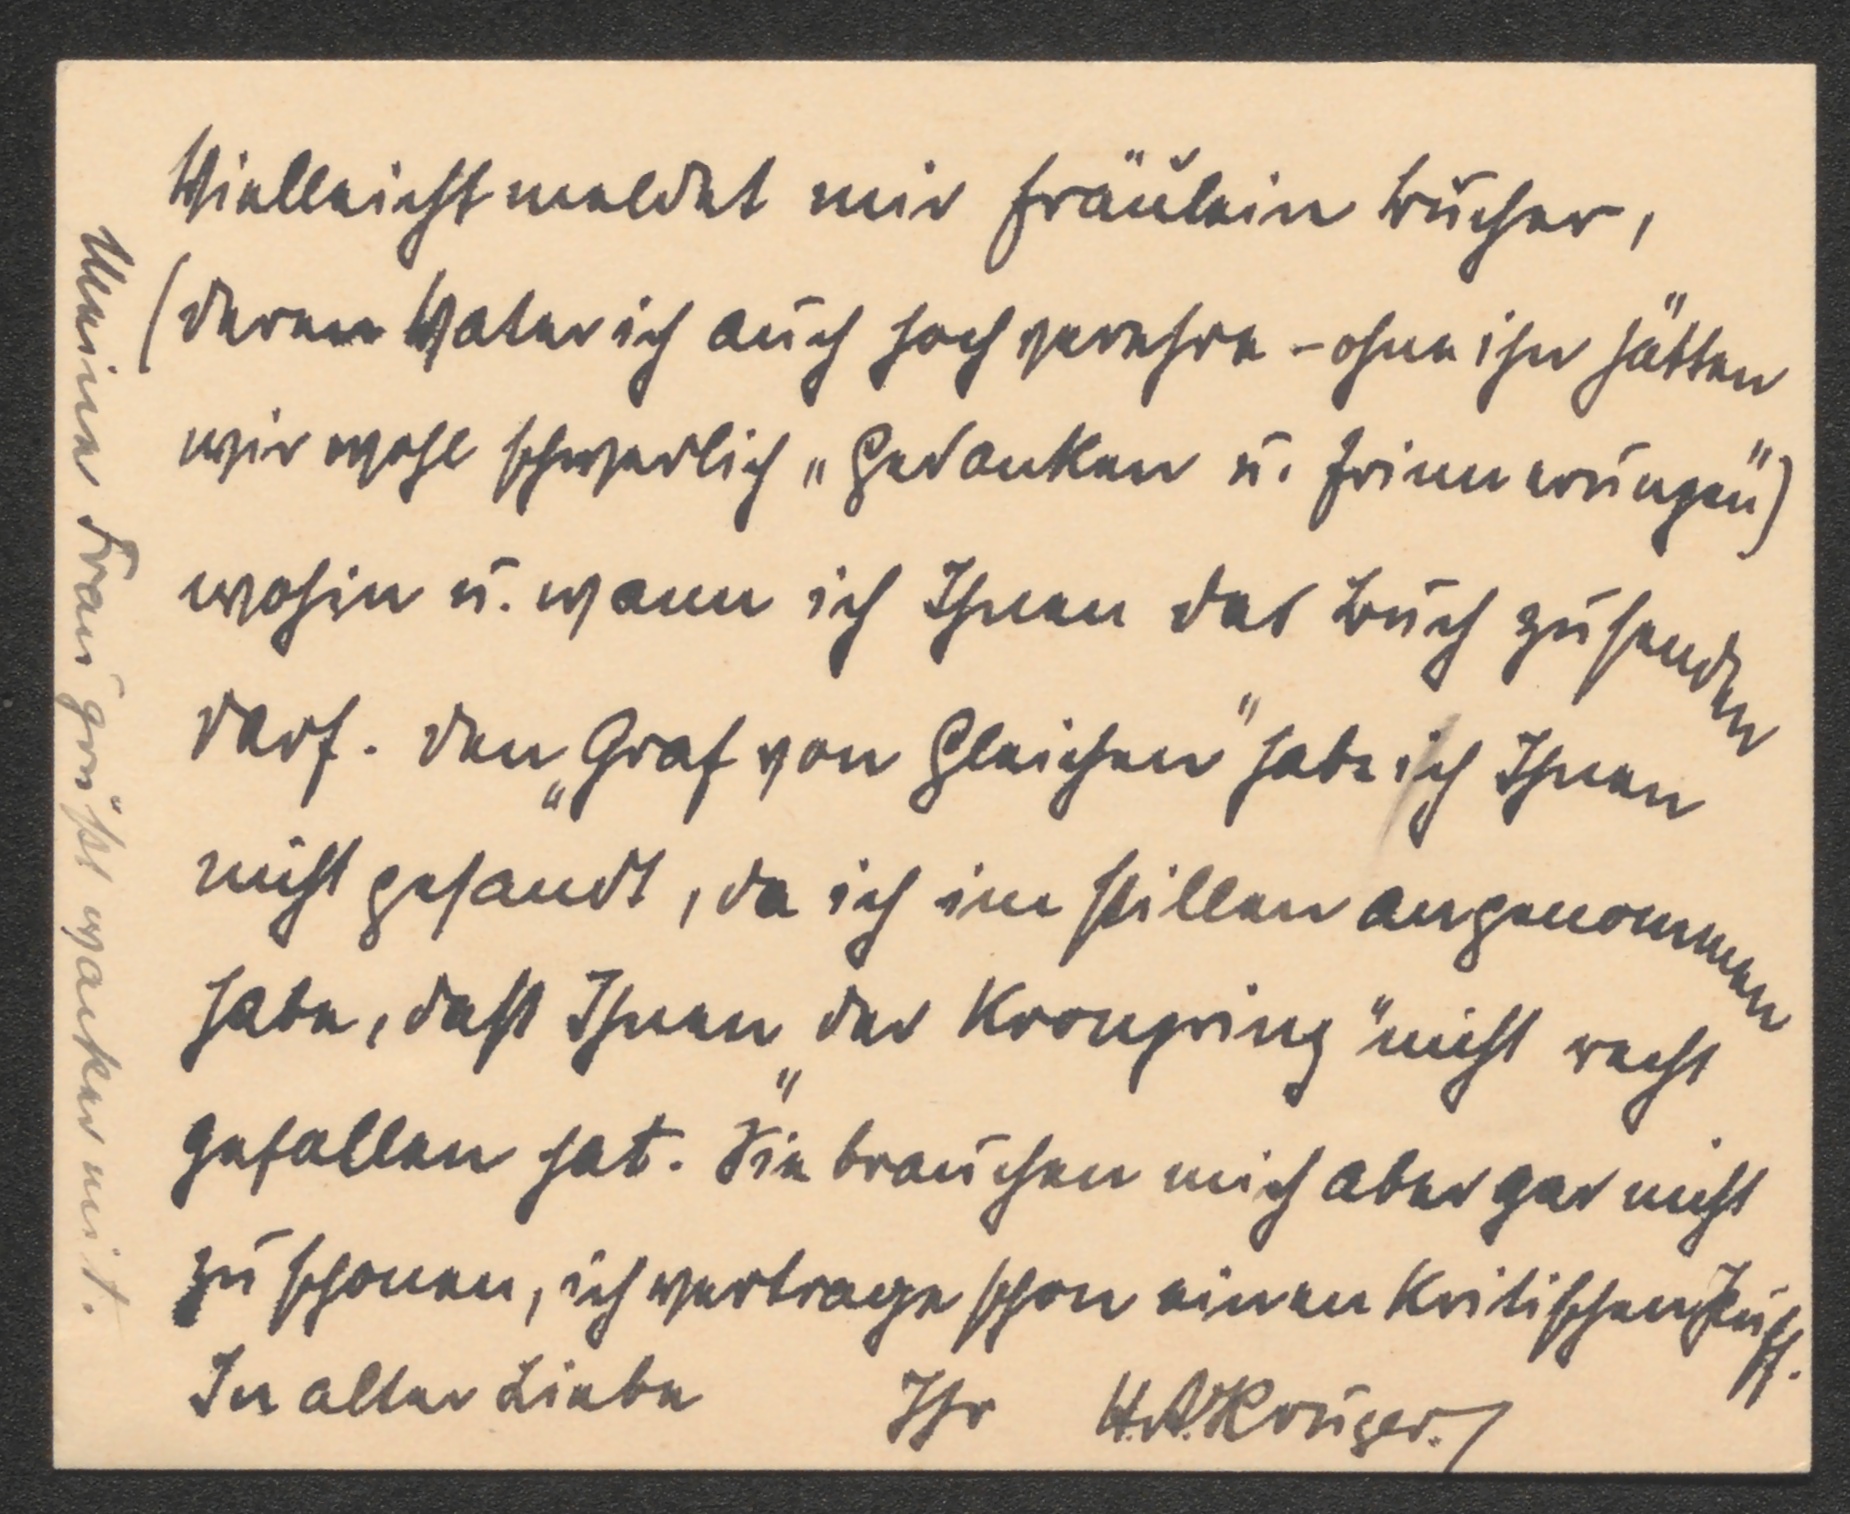 Vielleicht meldet mir Fräulein Bucher,
(deren Vater ich auch hoch verehre – ohne ihn hätten
wir wohl schwerlich „Gedanken u. Erinnerungen")
wohin u. wann ich Ihnen das Buch zusenden
darf. Den „Graf von Gleichen" habe ich Ihnen
nicht gesandt, da ich im stillen angenommen
habe, daß Ihnen „der Kronprinz" nicht recht
gefallen hat. Sie brauchen mich aber gar nicht
zu schonen, ich vertrage schon einen kritischen Puff.
In alter Liebe Ihr H.A. Krüger.
Meine Frau grüßt wacker mit.